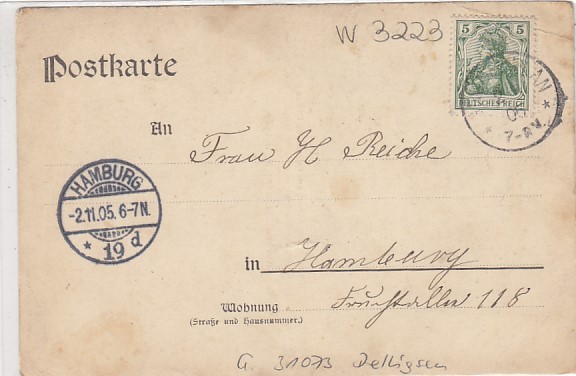 W 3223
Postkarte
5 5
DEUTSCHES REICH
05
7-8V.
An
Frau H Reiche
HAMBURG
-2.11.05. 6-7N.
* 19 d
in Hamburg
Wohnung
(Straße und Hausnummer.)
Fruchtallee 118
G. 31073 Delligsen